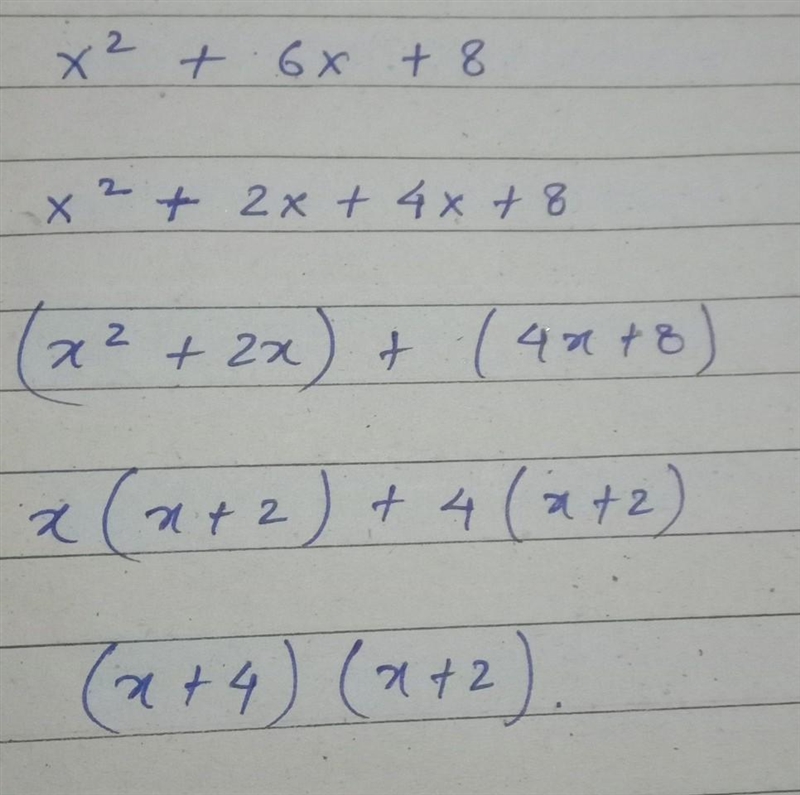 x² + 6x + 8
x² + 2x + 4x + 8
(x² + 2x) + (4x + 8)
x(x + 2) + 4(x + 2)
(x + 4)(x + 2).